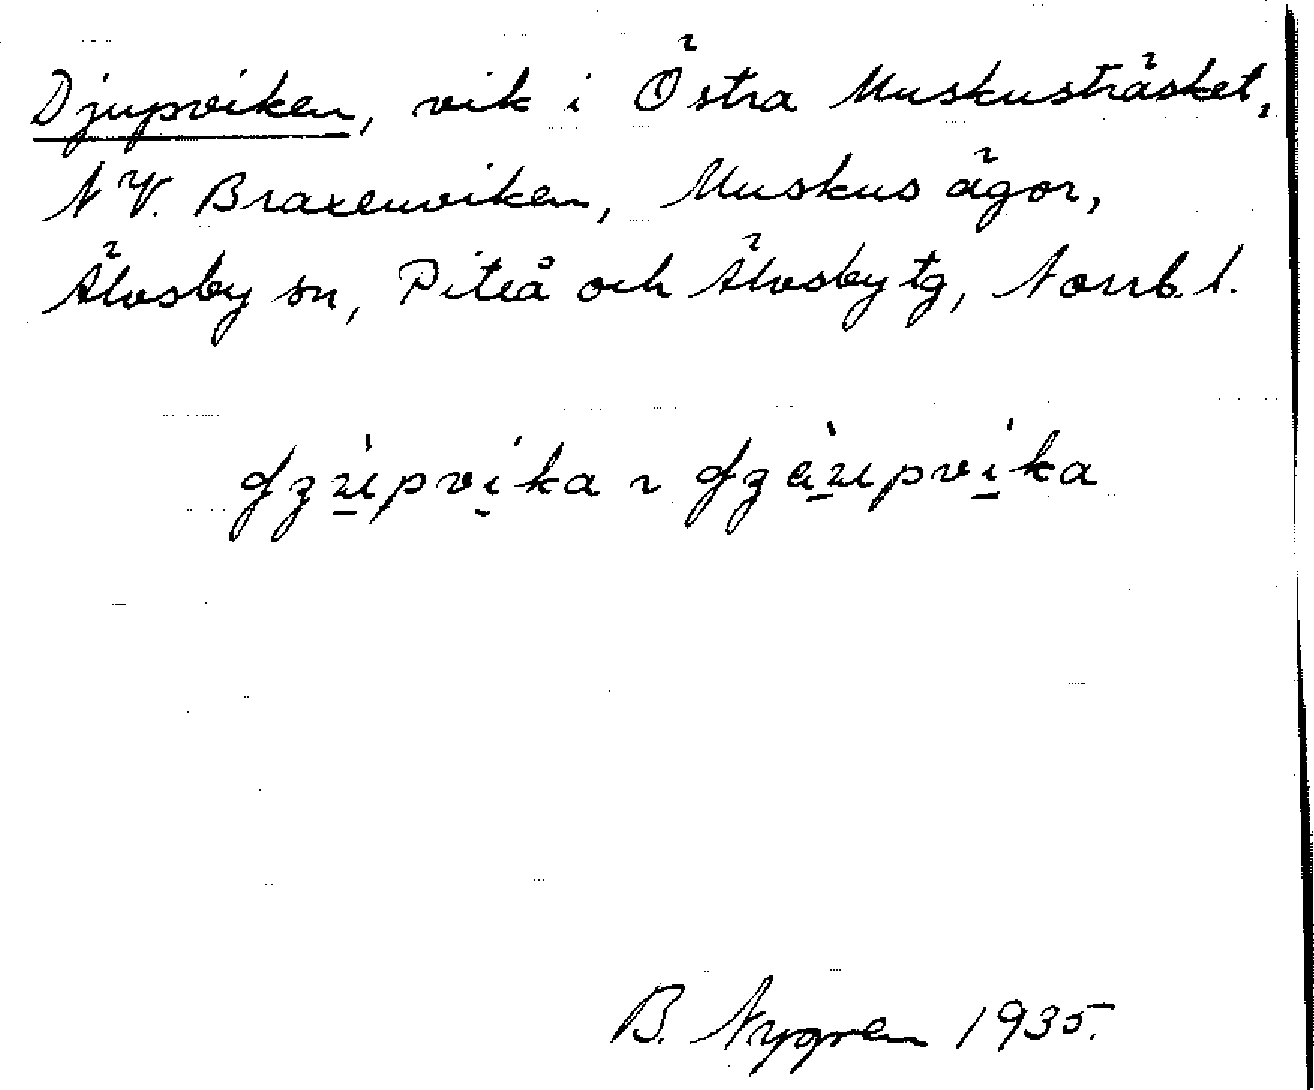 Djupviken, vik i Östra Muskusträsket,
NV. Braxenviken, Muskus ägor,
Älvsby sn, Piteå och Älvsby tg, Norrb. l.
B. Nygren 1935.